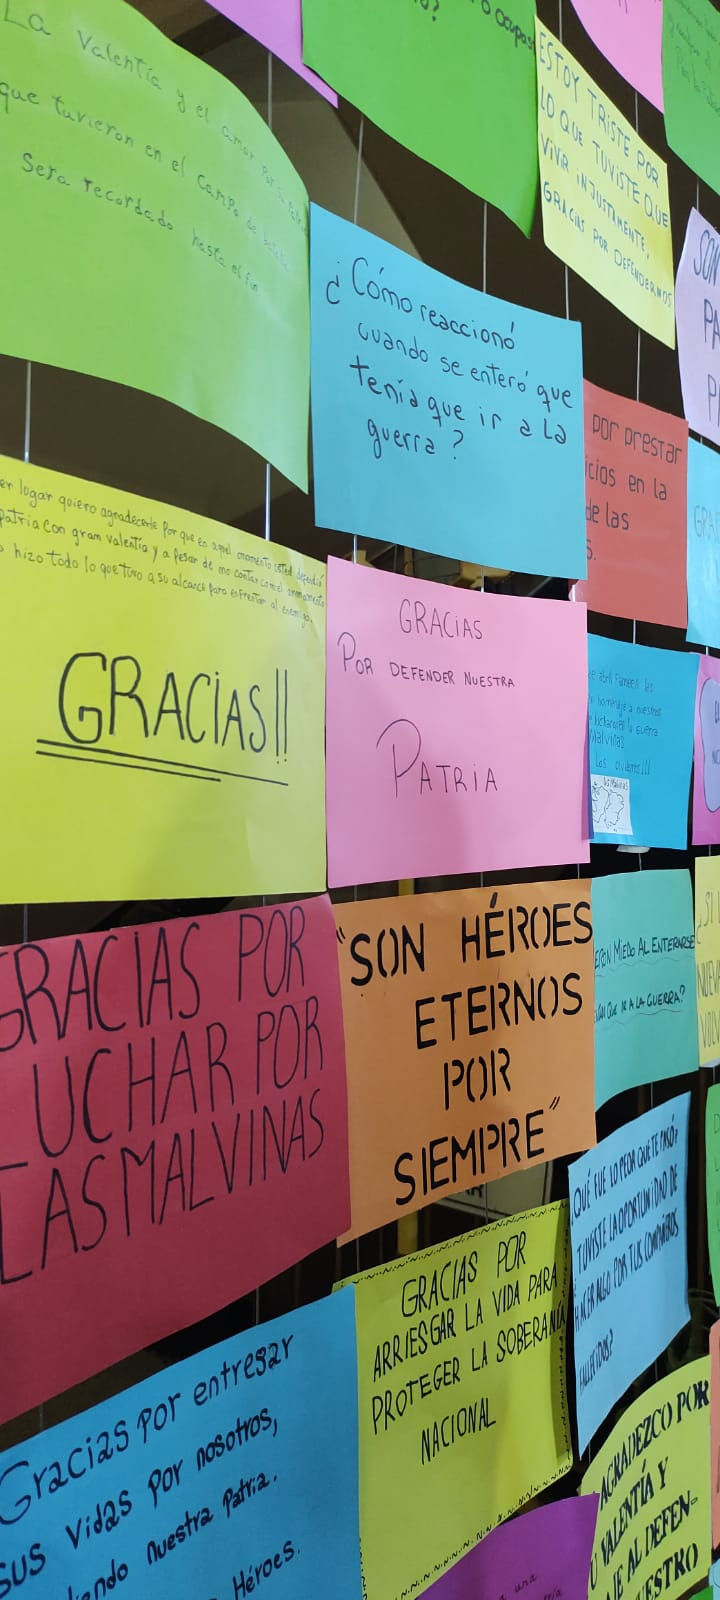 La valentía y el amor por su patria
que tuvieron en el campo de batalla
Sera recordado hasta el fin
o ocupas
?
ESTOY TRISTE POR
LO QUE TUVISTE QUE
VIVIR INJUSTAMENTE,
GRACIAS POR DEFENDERNOS
SON
PA
P
¿Cómo reaccionó
cuando se enteró que
tenía que ir a la
guerra?
por prestar
icios en la
de las
s.
GRA
er lugar quiero agradecerte por que en aquel momento usted defendió
patria con gram valentía y a pesar de no contar con el armamento
o hizo todo lo que tuvo a su alcance para enfrentar al enemigo.
GRACIAS!!
GRACIAS
POR DEFENDER NUESTRA
PATRIA
de abril fueron las
homenaje a nuestros
lucharon en la guerra
Malvinas
Los olvidemos!!!
Islas Malvinas
GRACIAS POR
LUCHAR POR
LAS MALVINAS
"SON HÉROES
ETERNOS
POR
SIEMPRE"
ERON MIEDO AL ENTERARSE
QUE IR A LA GUERRA?
¿SI
NUEVA
VOLV
GRACIAS POR
ARRIESGAR LA VIDA PARA
PROTEGER LA SOBERANÍA
NACIONAL
¿QUÉ FUE LO PEOR QUE TE PASÓ?
¿TUVISTE LA OPORTUNIDAD DE
HACER ALGO POR TUS COMPAÑEROS
FALLECIDOS?
Gracias por entregar
sus vidas por nosotros,
diendo nuestra patria.
Héroes.
AGRADEZCO POR
U VALENTÍA Y
AJE AL DEFEN-
UESTRO
una